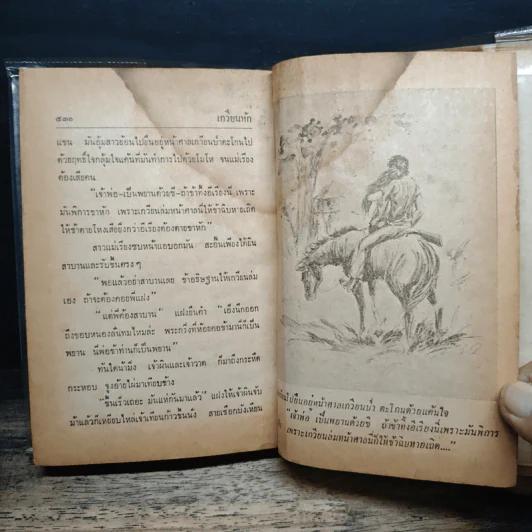 ๔๓๐ เกวียนหัก
แขน มันอุ้มสาวย้อนไปยืนอยู่หน้าศาลเกวียนบ๋าตะโกนไป
ด้วยฤทธิ์ใจกลุ้มใจแค้นที่มันทำการไปด้วยโมโห จนแม่เรียง
ต้องเสียคน
"เจ้าพ่อ-เป็นพยานด้วยซี-ถ้าข้าทิ้งอีเรียงนี่ เพราะ
มันพิการขาหัก เพราะเกวียนล่มหน้าศาลนี่ให้ข้าฉิบหายเถิด
ให้ข้าตายโหงเสียยิ่งกว่าอีเรียงต้องตายขาหัก"
สาวแม่เรียงซบหน้าแอบอกมัน สะอื้นเพียงได้ยิน
สาบานและรับขึ้นตรงๆ
"พอแล้วอย่าสาบานเลย ข้าอธิษฐานให้เกวียนล่ม
เอง ถ้าจะต้องคอยพี่แผ่ง"
"แต่พี่ต้องสาบาน" แผ่งยืนคำ "เอ็งนึกออก
ถึงขอบหนองลืนทมไหมล่ะ พระกริ่งที่ห้อยคอข้ามานี่ก็เป็น
พยาน นี่พ่อข้าท่านก็เป็นพยาน"
ทันใดน้ำมึ่ง เจ้าผินและเจ้าวาด ก็มาถึงกระหืด
กระหอบ จูงย้ายไผ่มาเทียบข้าง
"ขึ้นเร็วเถอะ มันแห่กันมาแล้ว" แผ่งให้เจ้าผินจับ
ม้าแล้วก็เหยียบไหล่เจ้าเทียนก้าวขึ้นนั่ง สายเชือกบังเหียน
ยืนอยู่หน้าศาลเกวียนบ๋า ตะโกนด้วยแค้นใจ
"เจ้าพ่อ เป็นพยานด้วยซี ถ้าข้าทิ้งอีเรียงนี่เพราะมันพิการ
เพราะเกวียนล่มหน้าศาลนี่ก็ให้ข้าฉิบหายเถิด...."